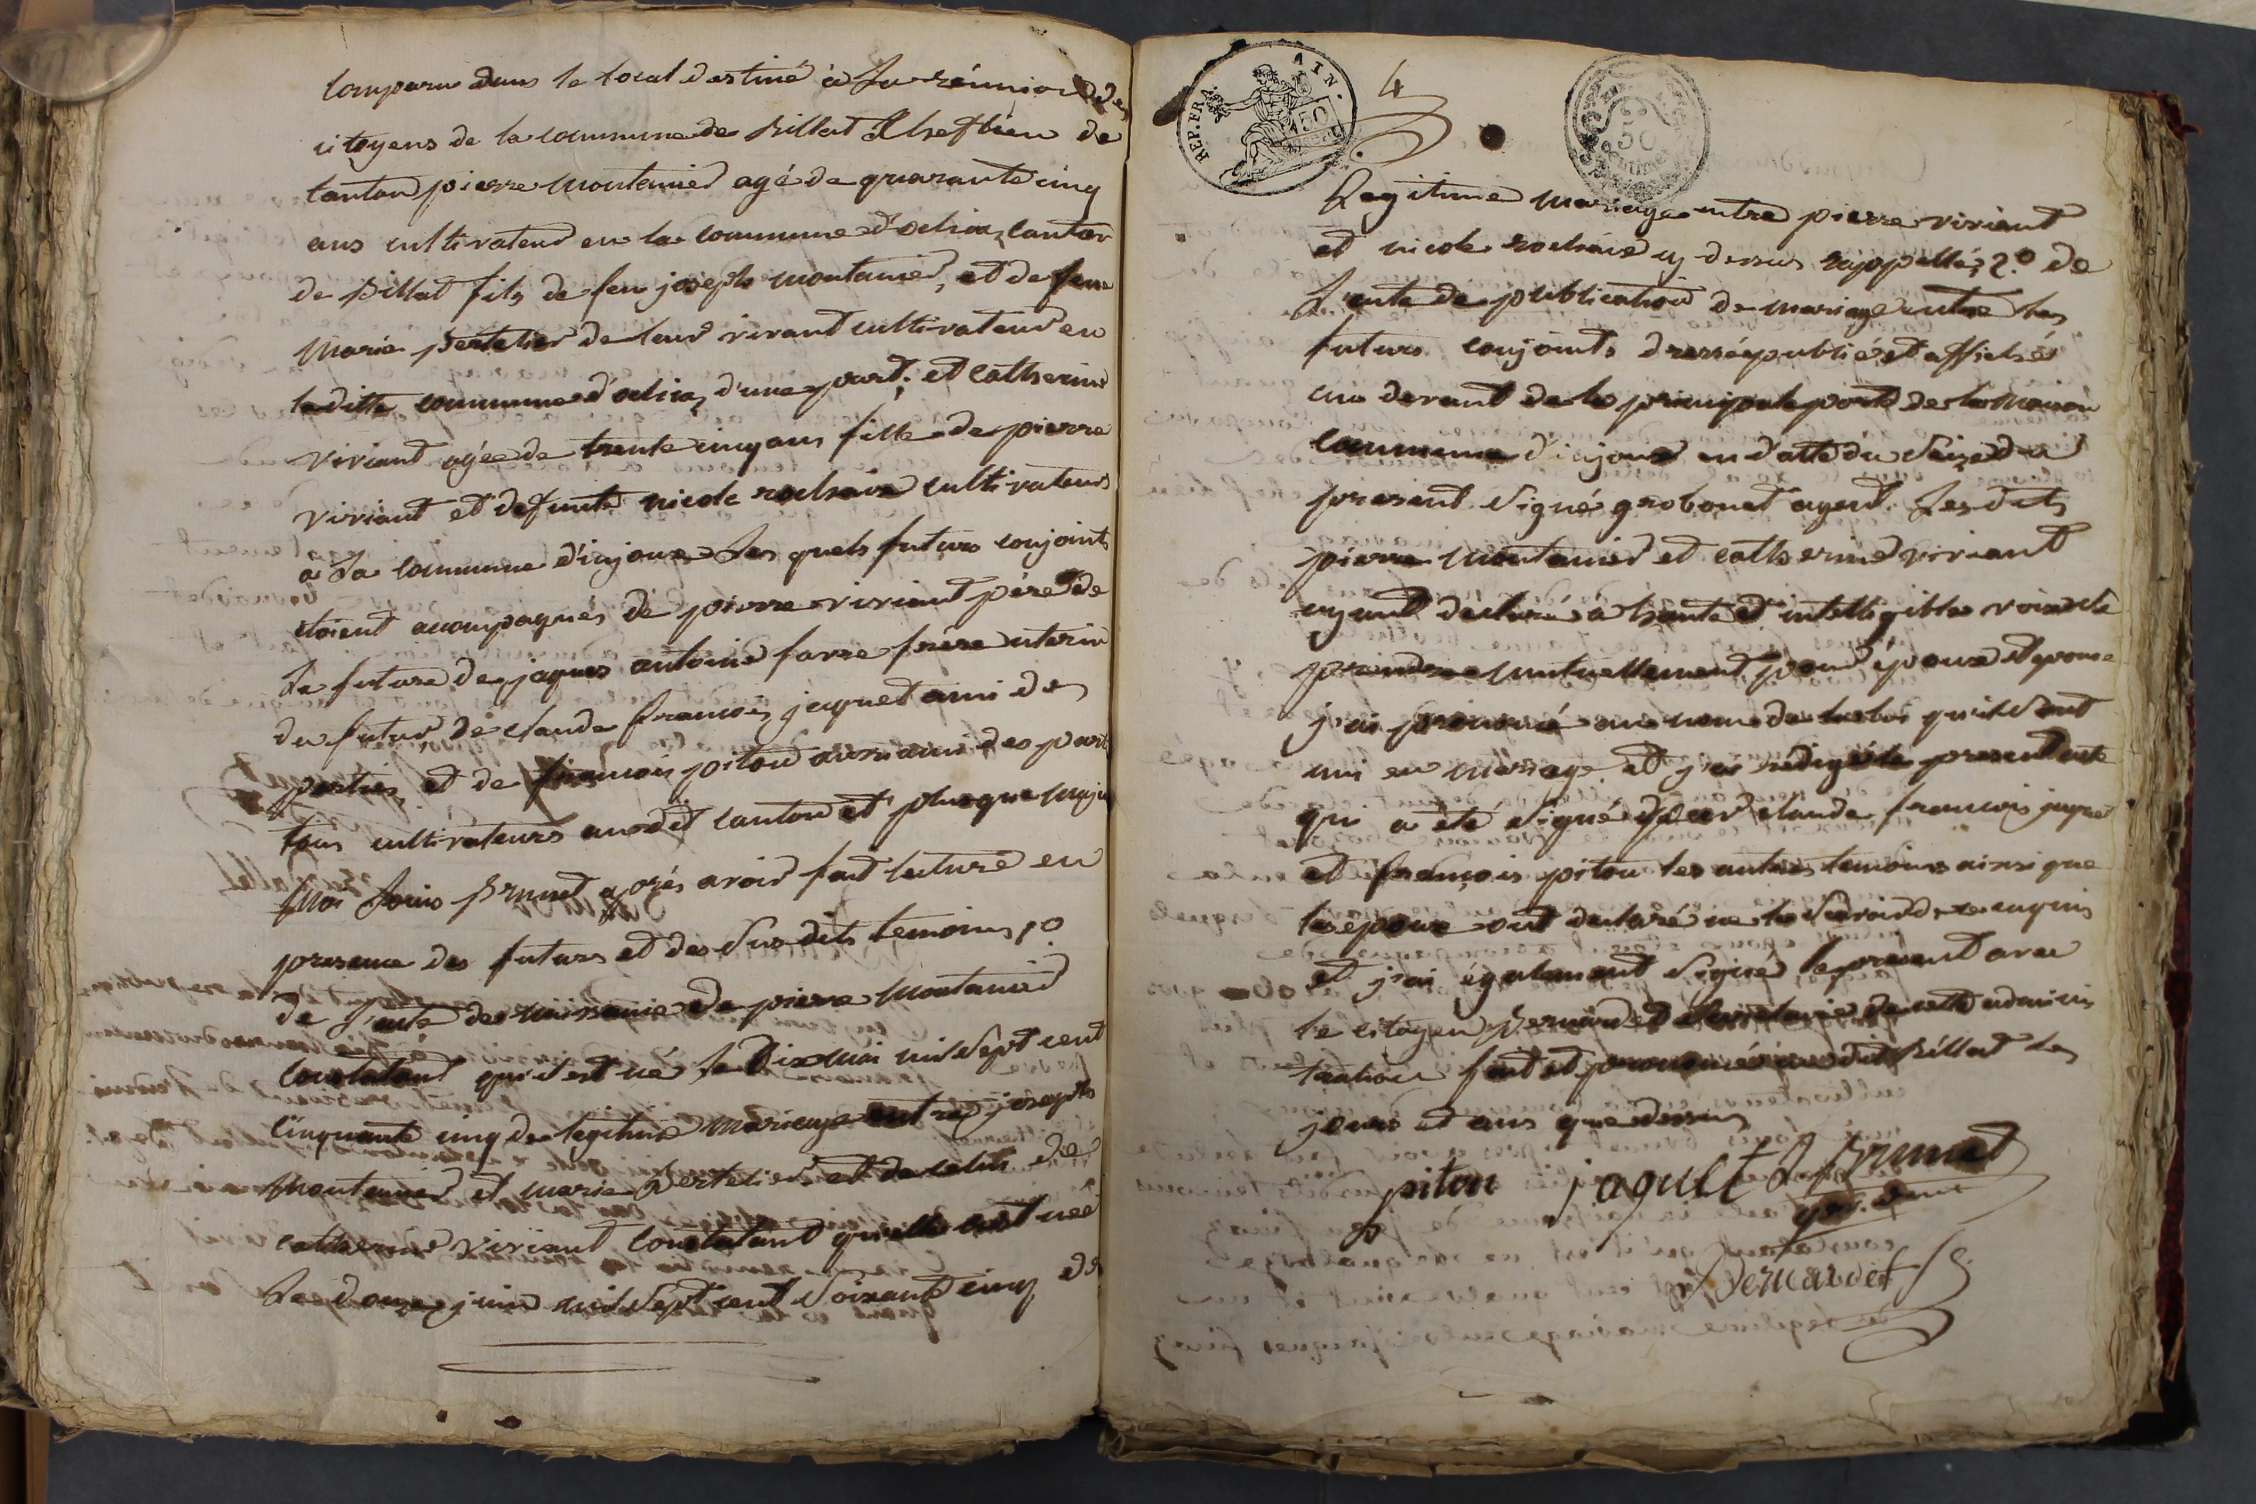 Comparu dans le local destiné à la réunion des
citoyens de la commune de billiat Chef lieu de
Canton pierre montanier agé de quarante cinq
ans cultivateur en la commune d'ochiaz canton
de billiat fils de feu joseph montanier, et de feue
marie pertelier de leur vivant cultivateur en
laditte commune d'ochiaz d'une part; et catherine
viviant agée de trente cinq ans fille de pierre
viviant et defunte nicole rochaix cultivateurs
a la commune d'injoux Les quels futurs conjoints
étoient accompagnés de pierre viviant père de
la future de jaques antoine favre frère uterin
du futur de claude francois jaquet ami des
parties, et de francois piton aussi ami des parties
tous cultivateurs audit canton et plusque majeurs
moi Louis brunet après avoir fait lecture en
presence des futurs et des susdits temoins 1°
de l'acte de naissance de pierre montanier
Constatant qu'il est né le Dix mai mil Sept cent
Cinquante cinq de legitime mariage entre joseph
montanier et marie pertelier et de celui de
catherine viviant constatant qu'elle est née
Le douze juin mil Sept cent Soixante cinq de
REP. FRA. AIN.
4
50
50
Legitime mariage entre pierre viviant
et nicole rochaix cy dessus rappellés 2° de
L'acte de publication de mariage entre les
futurs conjoints dressé publié et affiché
au devant de la principale porte de la Maison
commune d'injoux en datte du Seize du
present Signé grobonet agent. Lesdits
pierre montanier et catherine viviant
ayant declaré à haute et intelligible voix se
prendre mutuellement pour époux et epouse
j'ai prononcé au nom de la loi qu'il Sont
uni en mariage et j'ai rédigé le present acte
qui a été Signé par claude francois jaquet
et françois piton les autres temoins ainsi que
les epoux ont declaré ne le Savoir de ce enquis
et j'ai également Signé le present avec
le citoyen bernardet Secretaire de cette adminis
tration fait et prononcé audit billiat les
jours et ans que dessus
piton jaquet L brunet
Bernardet